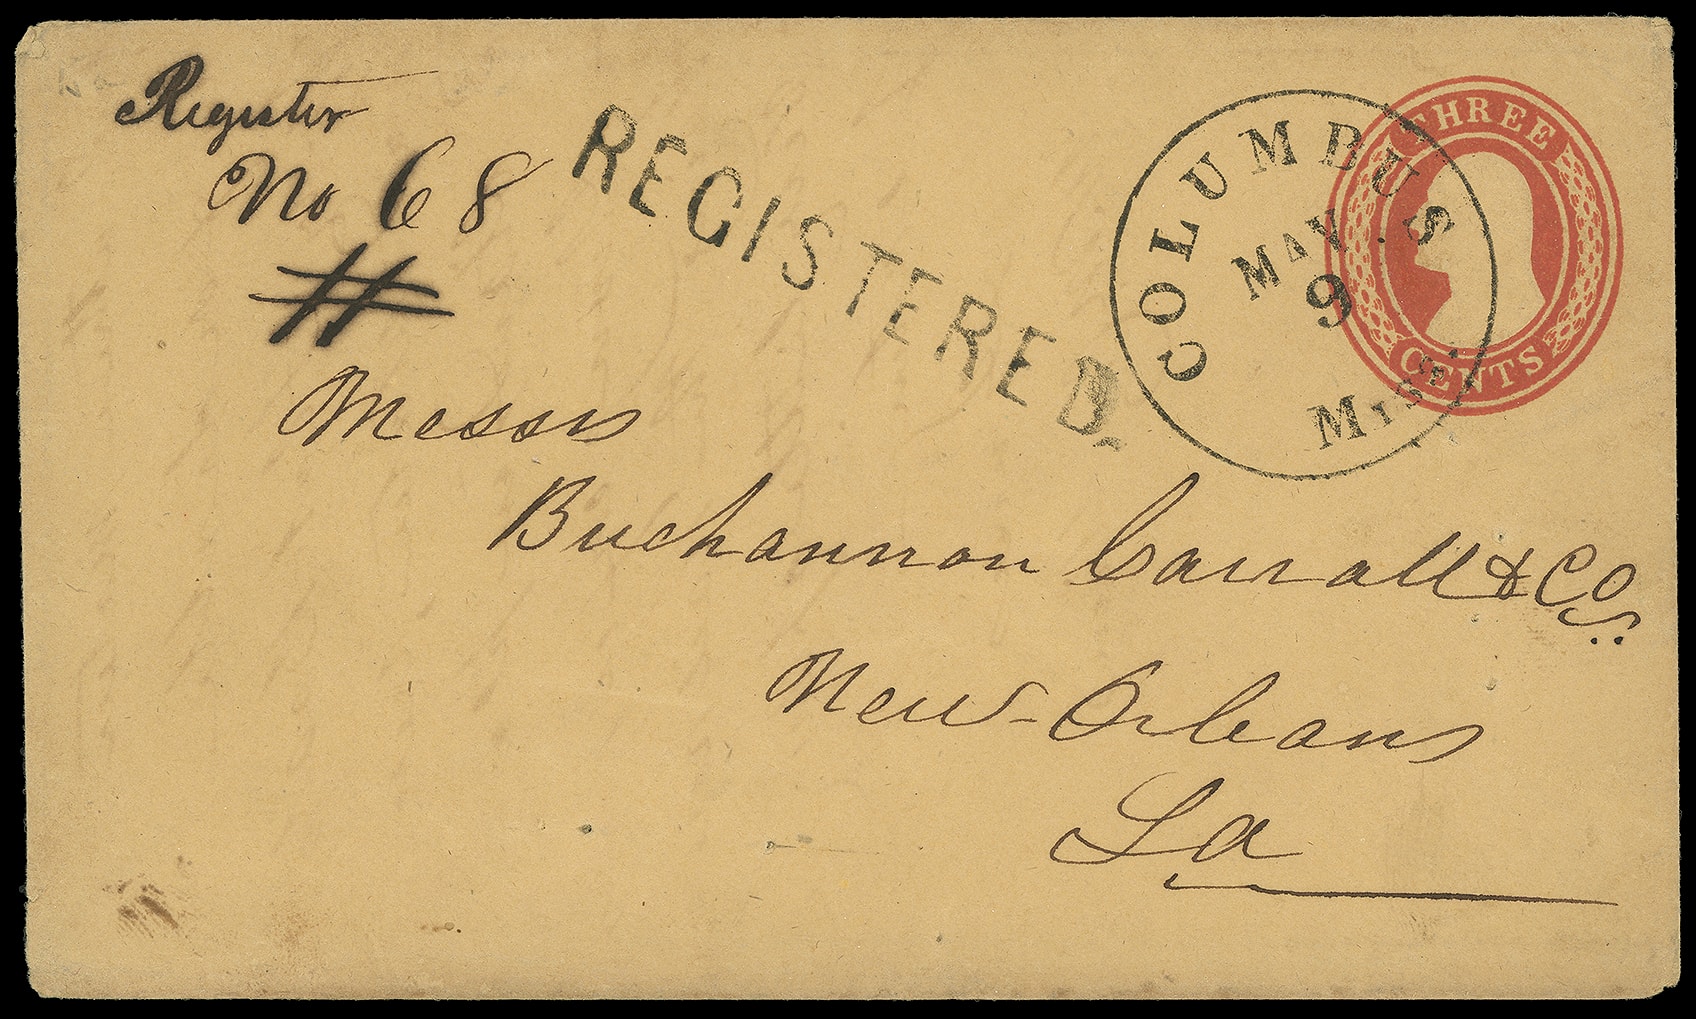 Register
No 68
#
REGISTERED.
COLUMBUS
MAY
9
MISSI.
THREE
CENTS
Messrs
Buchannon Carroll & Co.
New-Orleans
La